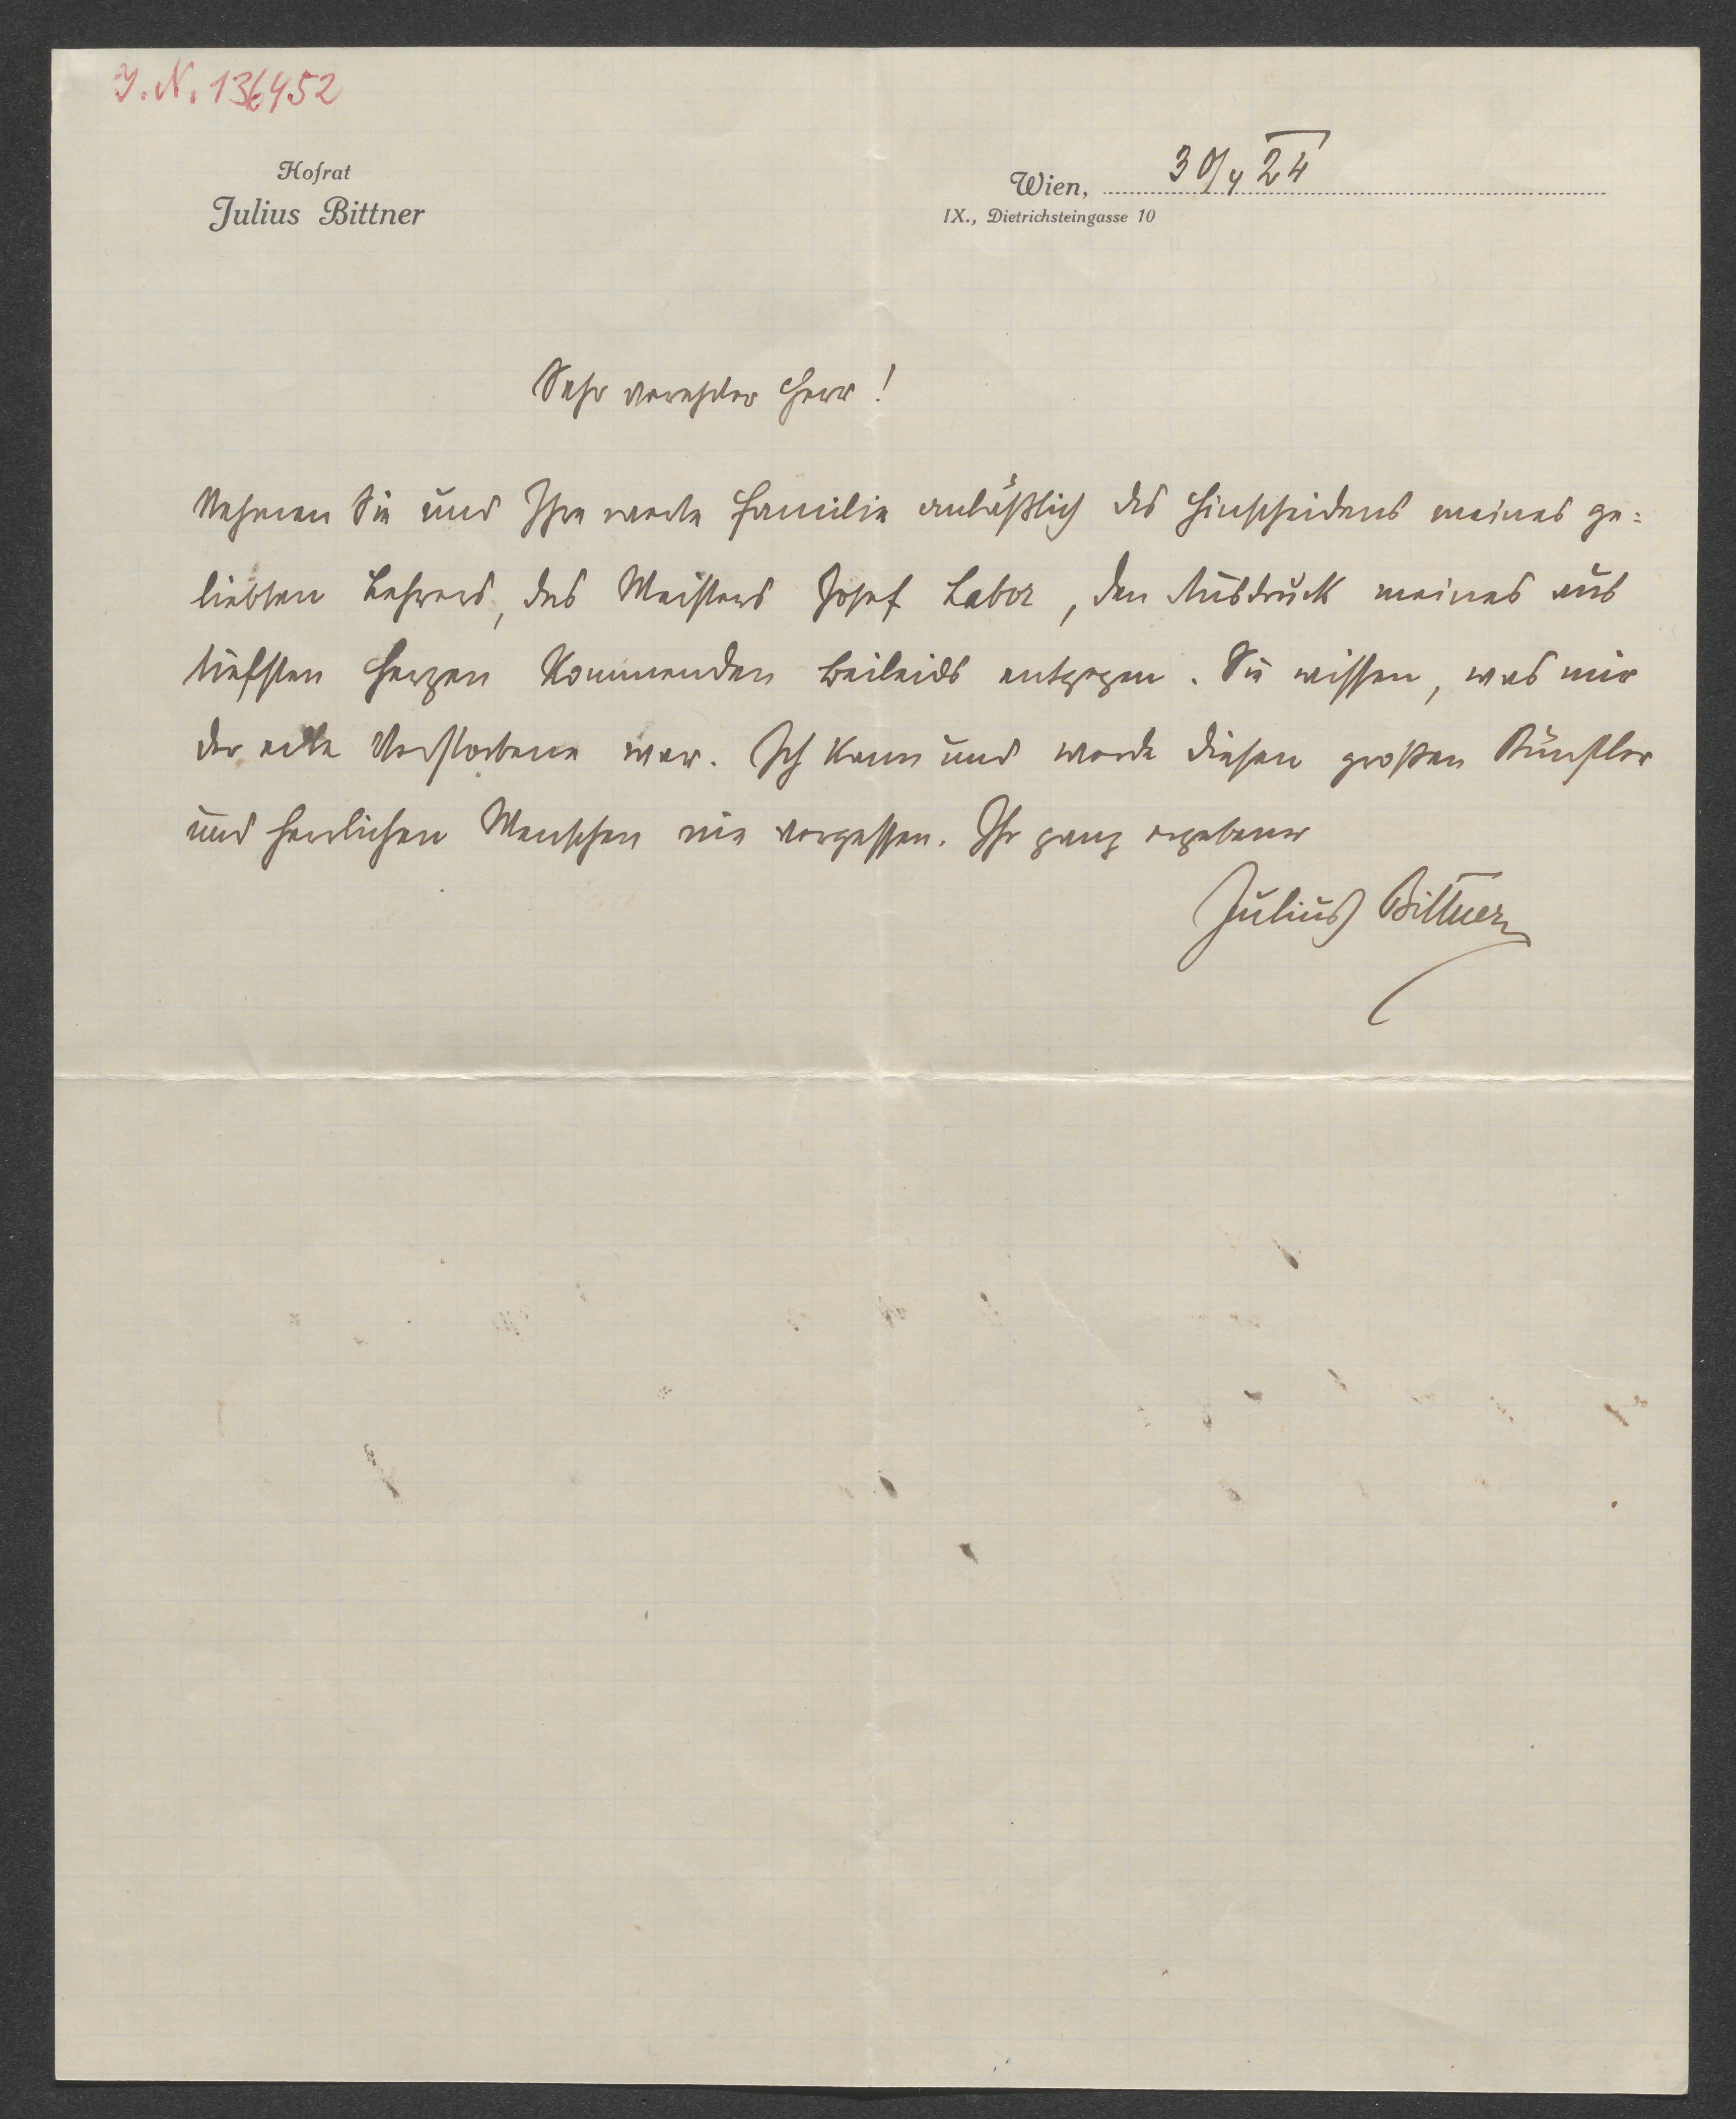 J.N. 136452
Hofrat
Julius Bittner
Wien, 30/4 24
IX., Dietrichsteingasse 10
Sehr verehrter Herr!
Nehmen Sie und Ihre werte Familie anläßlich des Hinscheidens meines ge=
liebten Lehrers, des Meisters Josef Labor, den Ausdruck meines aus
tiefsten Herzen kommenden Beileids entgegen. Sie wissen, was mir
der edle Verstorbene war. Ich kann und werde diesen großen Künstler
und herrlichen Menschen nie vergessen. Ihr ganz ergebener
Julius Bittner